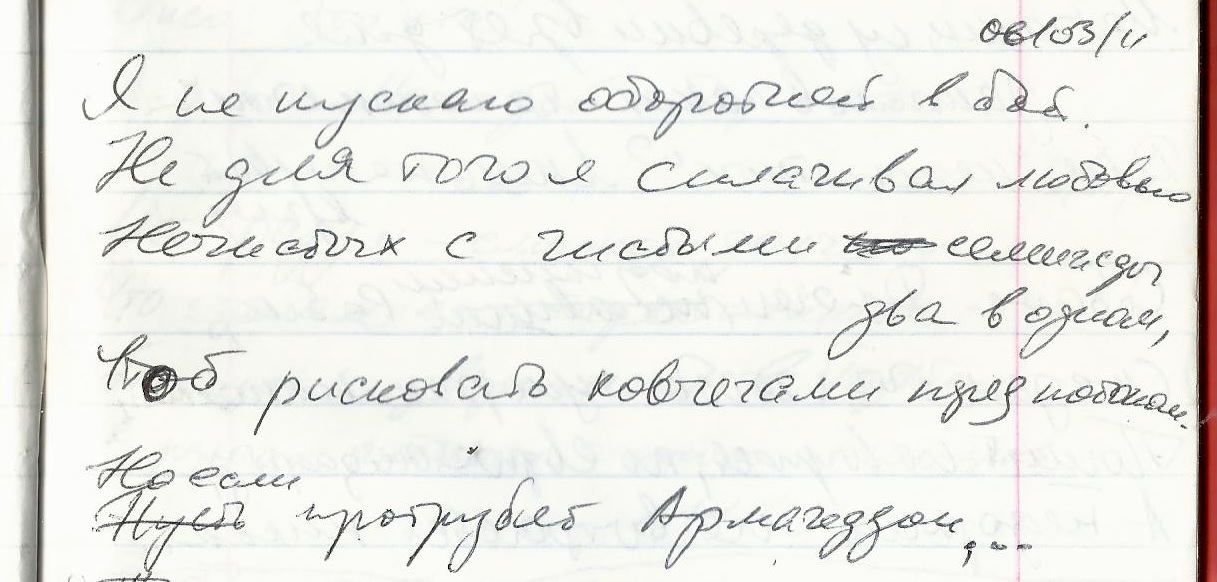 06/03/11
Я не пускаю оборотней в бой.
Не для того я сплачивал любовью
Нечистых с чистыми семижды
два в одном,
Чтоб рисковать ковчегами пред потопом.
Но если
Пусть протрубят Армагеддон,...